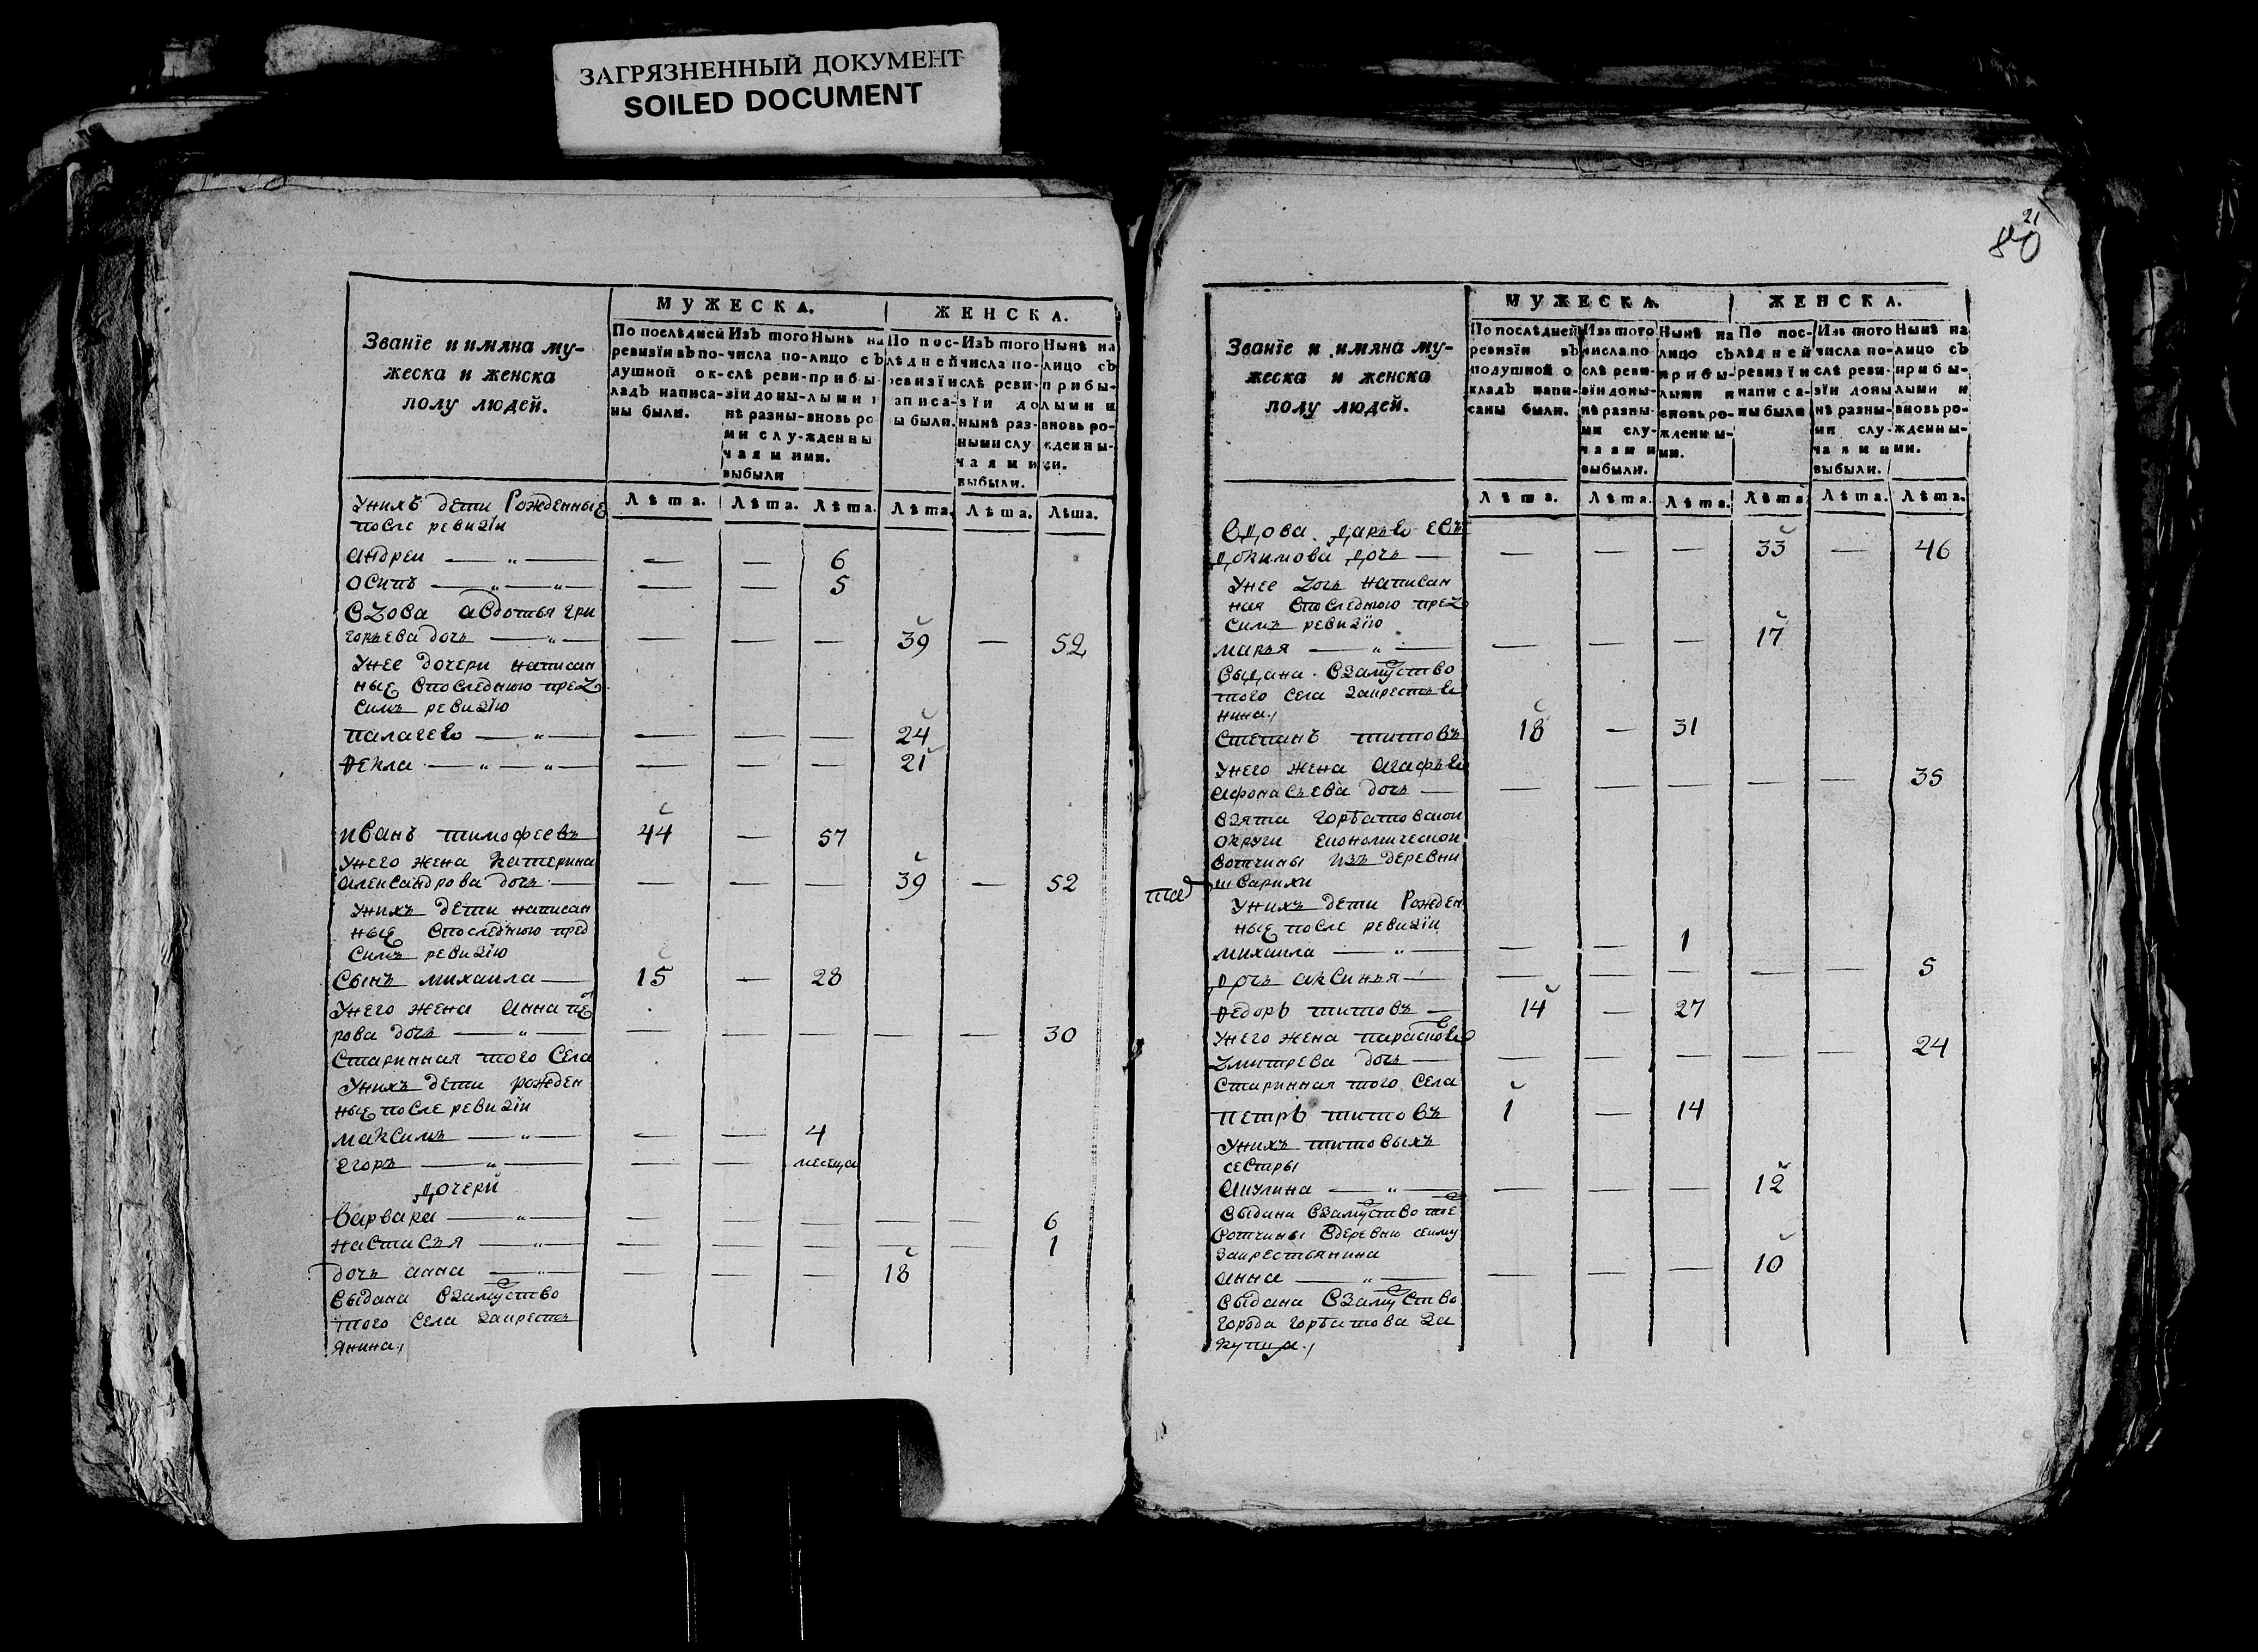 ЗАГРЯЗНЕННЫЙ ДОКУМЕНТ
SOILED DOCUMENT
МУЖЕСКА. ЖЕНСКА.
Званїе и имяна му-
жеска и женска
полу людей.
По послѣдней
ревизїи въ по-
душной ок-
ладъ написа-
ны были.
Изъ того
числа по-
слѣ реви-
зїи доны-
нѣ разны-
ми слу-
чаями
выбыли
Нынѣ на
лицо съ
прибы-
лыми и
вновь ро
жденны
ми.
По пос-
лѣдней
ревизїи
написа-
ы были.
Изъ того
числа по-
слѣ реви-
зїи до
нынѣ раз-
ными слу
чаями
выбыли.
Нынѣ на
лицо съ
прибы-
лыми и
вновь ро-
жденны-
ми.
Лѣта. Лѣта. Лѣта. Лѣта. Лѣта. Лѣта.
Унихъ дети Рожденные
после ревизїи
андреи — „ — — — 6
осипъ — „ — „ — — — 5
вдова авдотья гри
горьева дочь — „ — — — — 39 — 52
Унее дочери написан
ные впоследнюю пред
симъ ревизїю
палагея — „ — — — — 24
Ѳекла — „ — „ — — — — 21
иванъ тимофеевъ 44 — 57
Унего жена катерина
александрова дочь — — — — 39 — 52
Унихъ дети написан
ные впоследнюю пред
симъ ревизїю
сынъ михаила — 15 — 28
Унего жена анна пе
рова дочь — „ — — — — — — 30
старинная того села
Унихъ дети рожден
ные после ревизїи
максимъ — „ — — — 4
егоръ — „ — — — месеца
дочери
варвара — „ — — — — — — 6
настасья — „ — — — — — — 1
дочь анна — „ — — — — 18
выдана взамуство
того села закресть
янина
21
80
МУЖЕСКА. ЖЕНСКА.
Званїе и имяна му-
жеска и женска
полу людей.
По послѣдней
ревизїи въ
подушной о
кладъ напи-
саны были.
Изъ того
числа по
слѣ реви-
зїи доны-
нѣ разны-
ми слу-
чаями
выбыли.
Нынѣ на
лицо съ
прибы-
лыми и
вновь ро-
жденны-
ми.
По пос-
лѣдней
ревизїи
написа-
ны были
Изъ того
числа по-
слѣ реви-
зїи доны
нѣ разны-
ми слу-
чаями
выбыли.
Нынѣ на
лицо съ
прибы-
лыми и
вновь ро-
жденны-
ми.
Лѣта. Лѣта. Лѣта. Лѣта. Лѣта. Лѣта.
вдова дарья ев
докимова дочь — — — — 33 — 46
Унее дочь написан
ная впоследнюю пред
симъ ревизїю
марья — „ — — — — 17
выдана взамуство
того села закрестья
нина
степанъ титовъ 18 — 31
Унего жена агафья
афонасьева дочь — — — — — — 35
взята горбатовской
округи економической
вотчины изъ деревни
шварихи
Унихъ дети Рожден
ные после ревизїи
михаила — „ — — — 1
дочь аксинья — — — — — — 5
Ѳедоръ титовъ — 14 — 27
Унего жена парасковья
дмитрева дочь — — — — — — 24
старинная того села
петръ титовъ 1 — 14
Унихъ титовыхъ
сестры
акулина — „ — — — — 12
выдана взамуство тое
вотчины вдеревню
закрестьянина
анна — „ — — — — 10
выдана взамуство
города горбатова за
купца